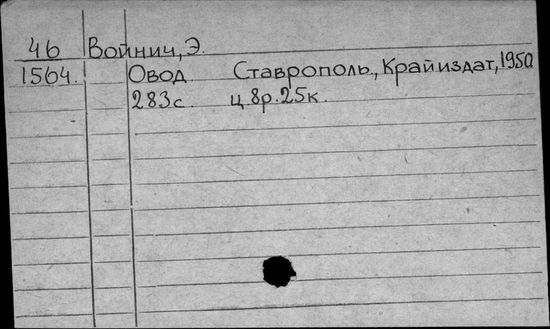 46 Войнич, Э.
1564. Овод Ставрополь, Крайиздат, 1950
283с. ц. 8р. 25к.